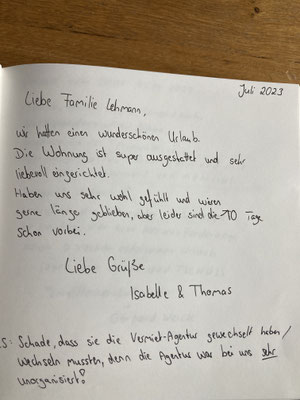 Juli 2023
Liebe Familie Lehmann,
wir hatten einen wunderschönen Urlaub.
Die Wohnung ist super ausgestattet und sehr
liebevoll eingerichtet.
Haben uns sehr wohl gefühlt und wären
gerne länge geblieben, aber leider sind die 10 Tage
schon vorbei.
Liebe Grüße
Isabelle & Thomas
S: Schade, dass sie die Vermiet-Agentur gewechselt haben/
wechseln mussten, denn die Agentur war bei uns sehr
unorganisiert!